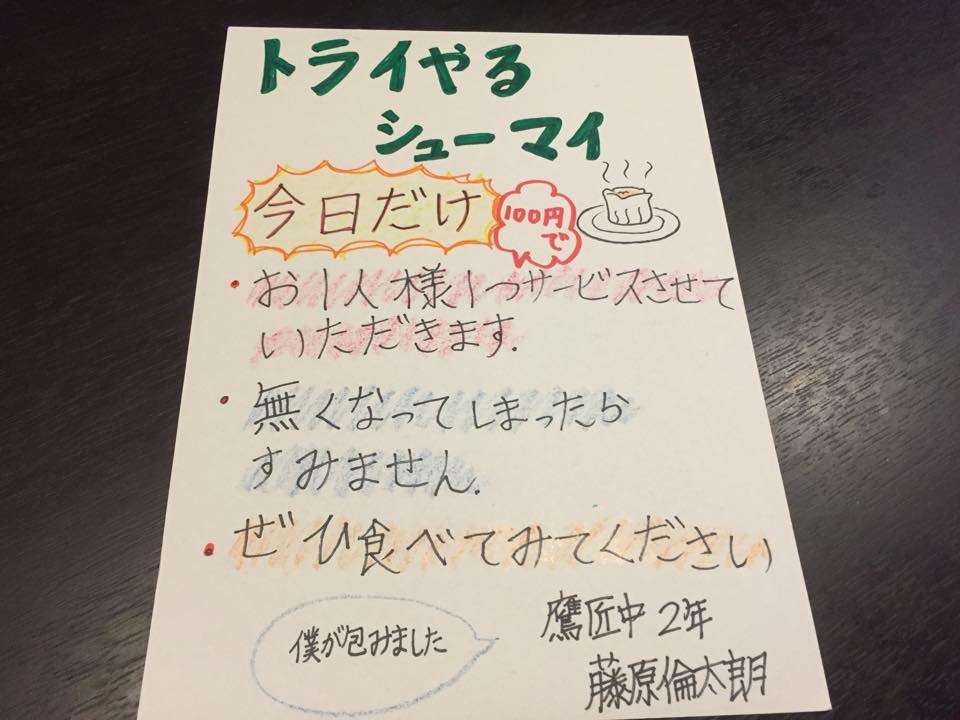 トライやる
シューマイ
今日だけ
100円
で
・お1人様1つサービスさせて
いただきます.
・無くなってしまったら
すみません.
・ぜひ食べてみてください
僕が包みました
鷹匠中2年
藤原倫太朗